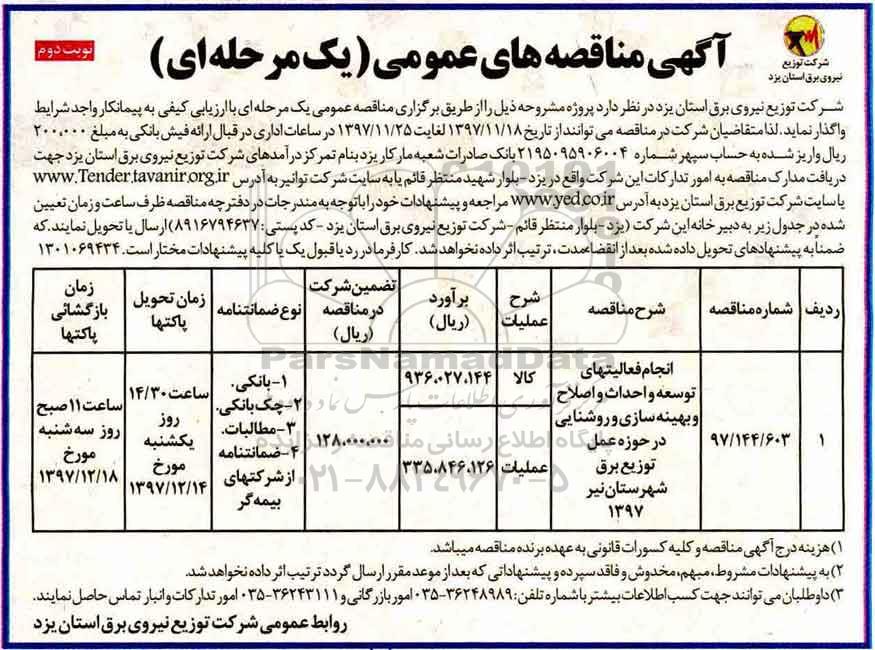 شرکت توزیع
نیروی برق استان یزد
آگهی مناقصه های عمومی (یک مرحله ای)
نوبت دوم
شرکت توزیع نیروی برق استان یزد در نظر دارد پروژه مشروحه ذیل را از طریق برگزاری مناقصه عمومی یک مرحله ای با ارزیابی کیفی به پیمانکار واجد شرایط
واگذار نماید. لذا متقاضیان شرکت در مناقصه می توانند از تاریخ ۱۳۹۷/۱۱/۱۸ لغایت ۱۳۹۷/۱۱/۲۵ در ساعات اداری در قبال ارائه فیش بانکی به مبلغ ۲۰۰,۰۰۰
ریال واریز شده به حساب سپهر شماره ۲۱۹۵۰۹۵۹۰۶۰۰۴ بانک صادرات شعبه مارکار یزد بنام تمرکز درآمدهای شرکت توزیع نیروی برق استان یزد جهت
دریافت مدارک مناقصه به امور تدارکات این شرکت واقع در یزد-بلوار شهید منتظر قائم یا به سایت شرکت توانیر به آدرس www.Tender.tavanir.org.ir
یا سایت شرکت توزیع برق استان یزد به آدرس www.yed.co.ir مراجعه و پیشنهادات خود را با توجه به مندرجات در دفترچه مناقصه ظرف ساعت و زمان تعیین
شده در جدول زیر به دبیرخانه این شرکت (یزد-بلوار منتظر قائم-شرکت توزیع نیروی برق استان یزد-کد پستی: ۸۹۱۶۷۹۴۶۳۷) ارسال یا تحویل نمایند. که
ضمناً به پیشنهادهای تحویل داده شده بعد از انقضاء مدت، ترتیب اثر داده نخواهد شد. کارفرما در رد یا قبول یک یا کلیه پیشنهادات مختار است. ۱۳۰۱۰۶۹۴۳۴
ردیف
شماره مناقصه
شرح مناقصه
شرح
عملیات
برآورد
(ریال)
تضمین شرکت
در مناقصه
(ریال)
نوع ضمانتنامه
زمان تحویل
پاکتها
زمان
بازگشائی
پاکتها
۱
۹۷/۱۴۴/۶۰۳
انجام فعالیتهای
توسعه و احداث و اصلاح
و بهینه سازی و روشنایی
در حوزه عمل
توزیع برق
شهرستان نیر
۱۳۹۷
کالا
۹۳۶.۰۲۷.۱۴۴
عملیات
۳۳۵.۸۴۶.۱۲۶
۱۲۸.۰۰۰.۰۰۰
۱-بانکی.
۲-چک بانکی.
۳-مطالبات.
۴-ضمانتنامه
از شرکتهای
بیمه گر
ساعت ۱۴/۳۰
روز
یکشنبه
مورخ
۱۳۹۷/۱۲/۱۴
ساعت ۱۱ صبح
روز سه شنبه
مورخ
۱۳۹۷/۱۲/۱۸
ParsNamadData
۰۲۱-۸۸۳۴۹۶۷۰-۵
۱) هزینه درج آگهی مناقصه و کلیه کسورات قانونی به عهده برنده مناقصه میباشد.
۲) به پیشنهادات مشروط، مبهم، مخدوش و فاقد سپرده و پیشنهاداتی که بعد از موعد مقرر ارسال گردد ترتیب اثر داده نخواهد شد.
۳) داوطلبان می توانند جهت کسب اطلاعات بیشتر با شماره تلفن: ۳۶۲۴۸۹۸۹-۰۳۵ امور بازرگانی و ۳۶۲۴۳۱۱۱-۰۳۵ امور تدارکات و انبار تماس حاصل نمایند.
روابط عمومی شرکت توزیع نیروی برق استان یزد